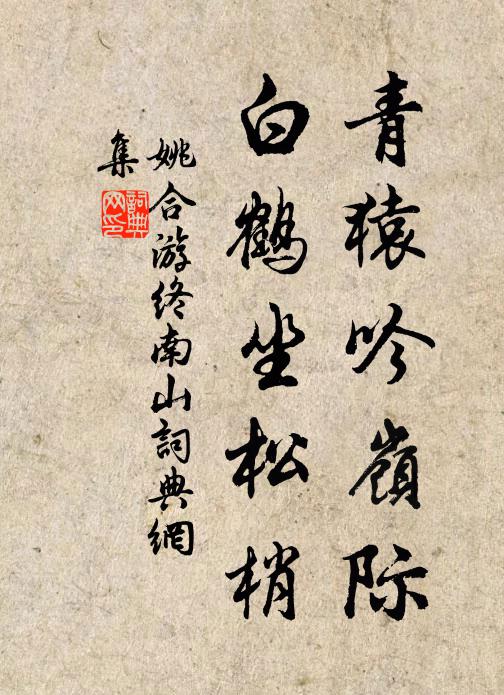 青猿吟嶺际
白鶴坐松梢
姚合游终南山詞典網
集
詞典
网印